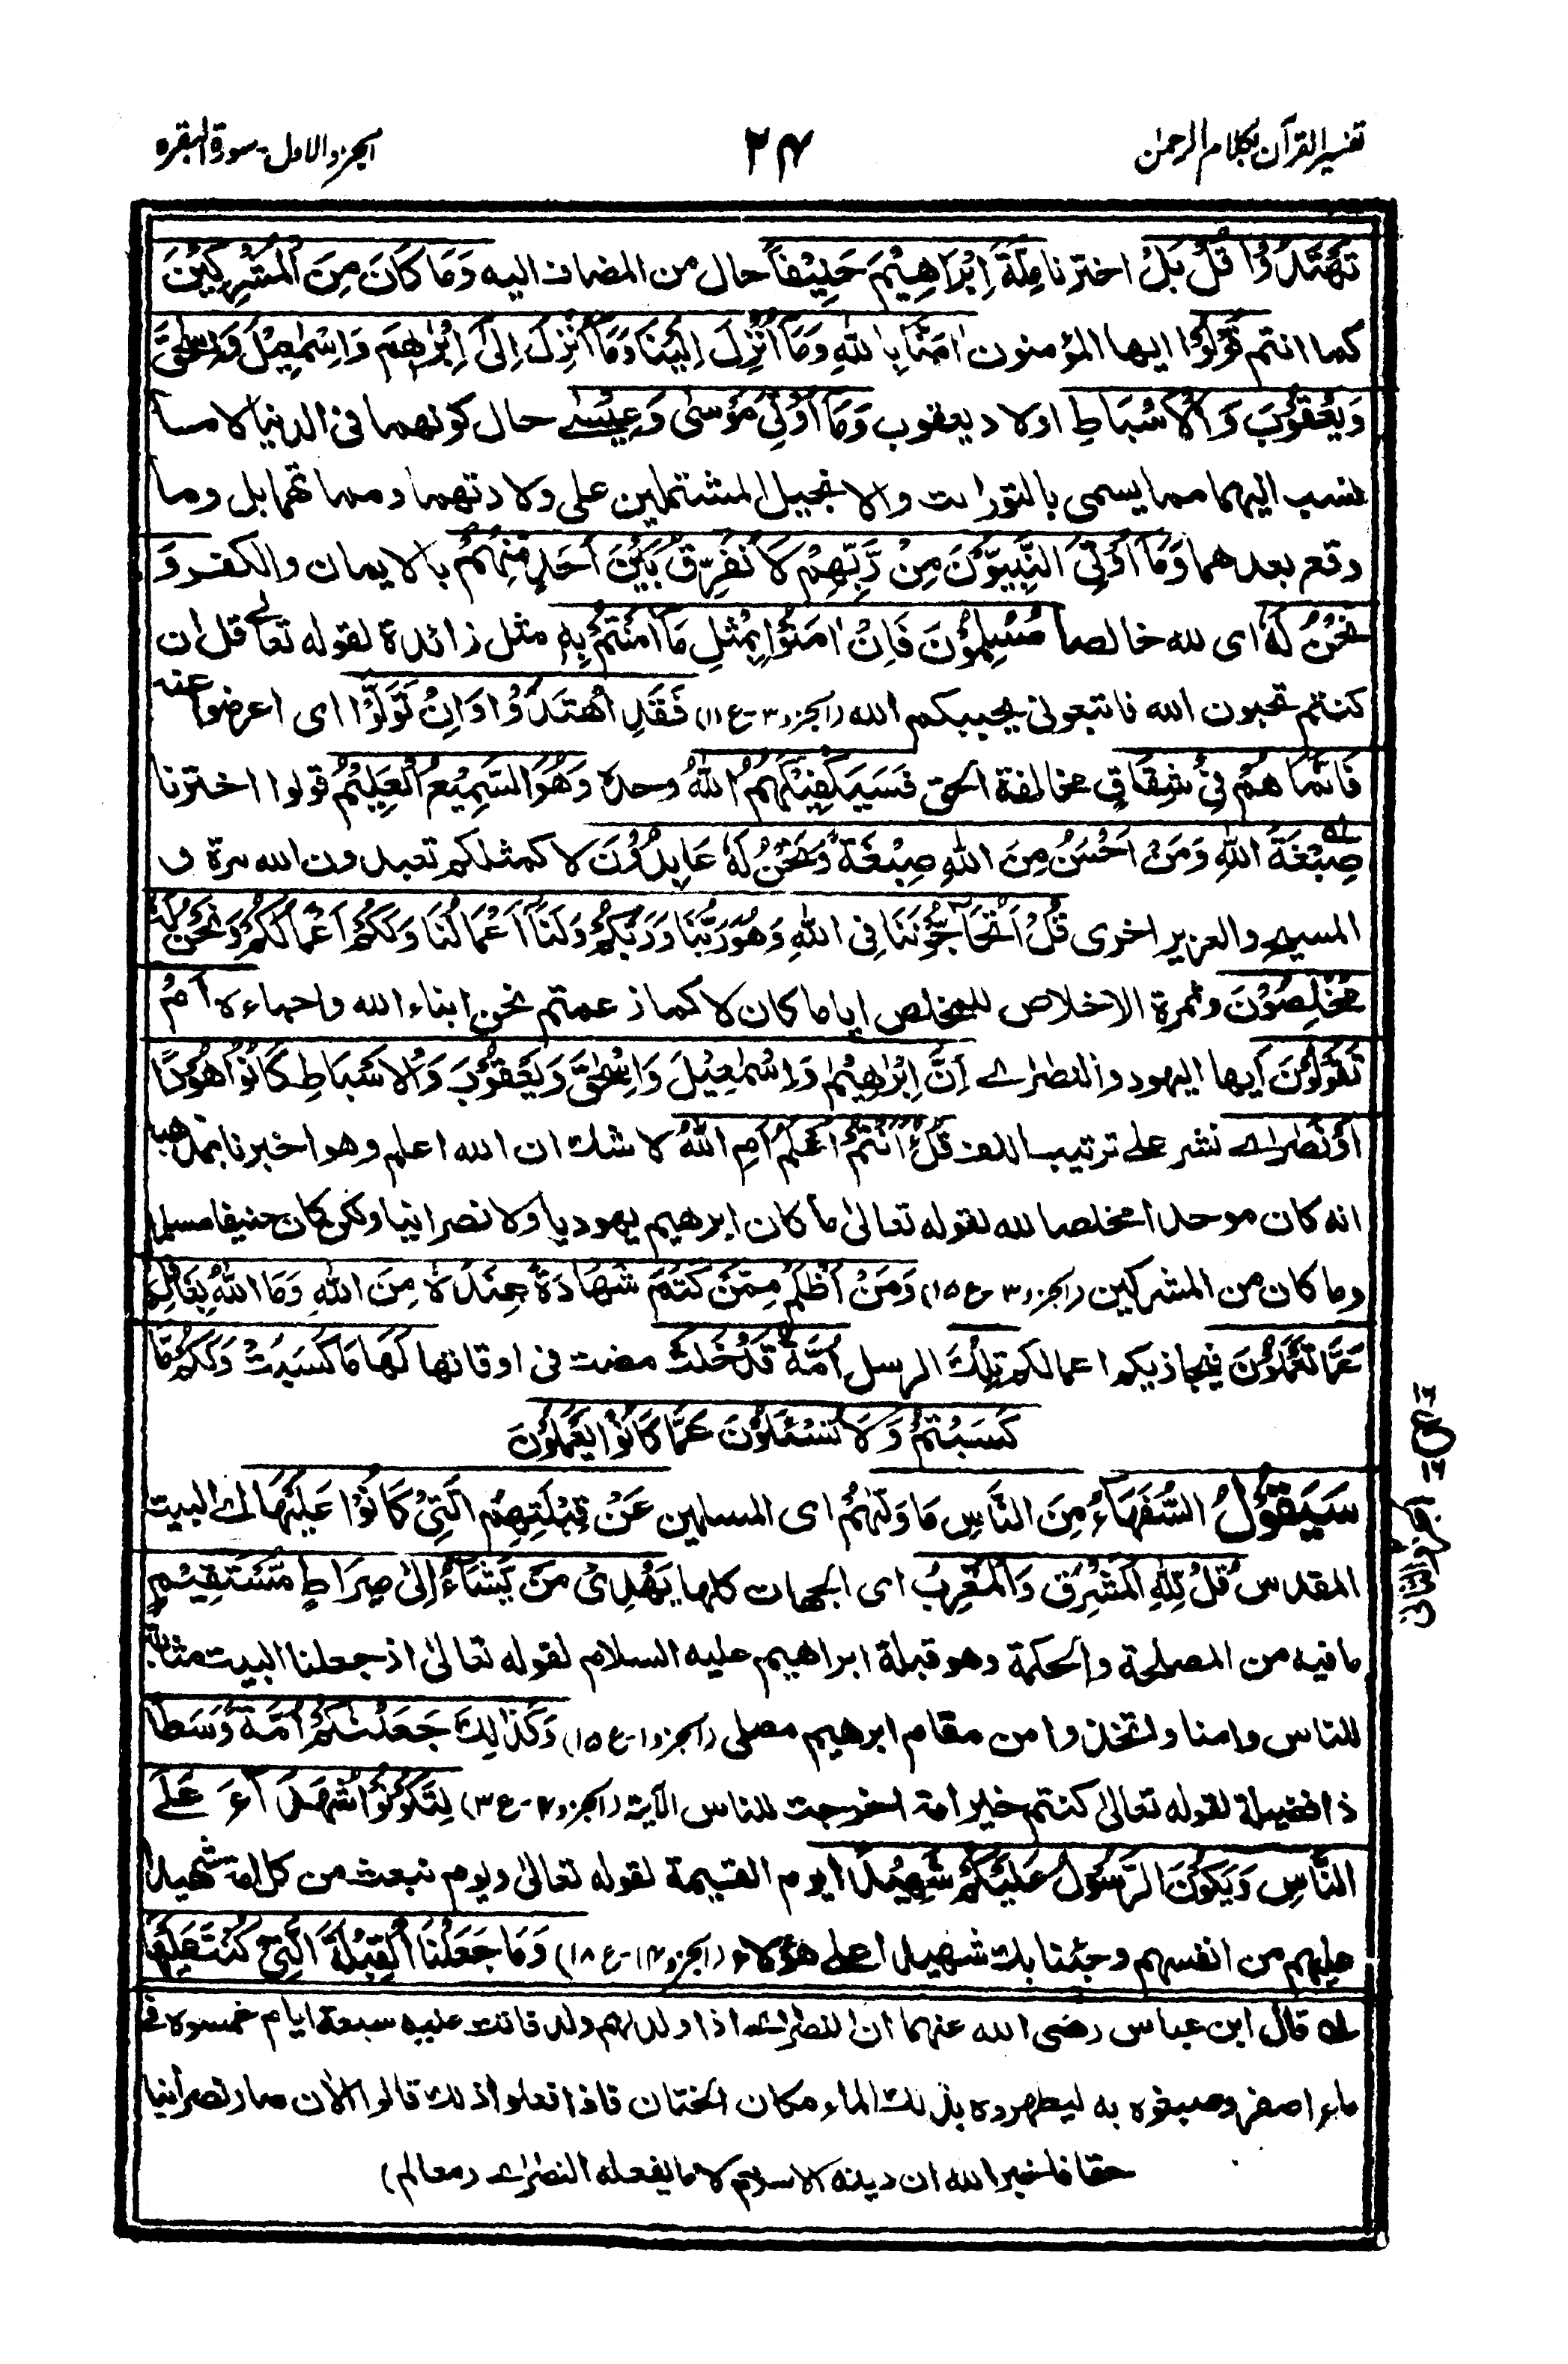 تفسیر القرآن بکلام الرحمٰن
۲۴
الجزء الاول - سورة البقره
تَهْتَدُوْا قُلْ بَلْ اخترنا مِلَّةَ اِبْرَاهِيْمَ حَنِيْفاً حال من المضاف اليه وَمَا كَانَ مِنَ الْمُشْرِكِيْنَ
كما انتم قُوْلُوْا ايها المؤمنون اٰمَنَّا بِاللّٰهِ وَمَا اُنْزِلَ اِلَيْنَا وَمَا اُنْزِلَ اِلىٰ اِبْرٰاهِمَ وَاِسْمٰعِيْلَ وَاِسْحٰقَ
وَيَعْقُوْبَ وَالْاَسْبَاطِ اولاد يعقوب وَمَا اُوْتِىَ مُوْسٰى وَعِيْسٰے حال كونهما فى الدنيا لا ما
نسب اليهما مما يسمى بالتورات والانجيل المشتملين على ولادتهما ومماتهما بل وما
وقع بعدهما وَمَا اُوْتِىَ النَّبِيُّوْنَ مِنْ رَّبِّهِمْ لَا نُفَرِّقُ بَيْنَ اَحَدٍ مِّنْهُمْ بالايمان والكفر وَ
نَحْنُ لَهٗ اى لله خالصا مُسْلِمُوْنَ فَاِنْ اٰمَنُوْا بِمِثْلِ مَا اٰمَنْتُمْ بِهٖ مثل زائدة لقوله تعالےٰ قل ان
كنتم تحبون الله فاتبعونى يحببكم الله (الجزو ۳ - ع ۱۱) فَقَدِ اهْتَدَوْا وَاِنْ تَوَلَّوْا اى اعرضوا عنه
فَاِنَّمَا هُمْ فِىْ شِقَاقٍ مخالفة الحق فَسَيَكْفِيْكَهُمُ اللّٰهُ وحده وَهُوَ السَّمِيْعُ الْعَلِيْمُ قولوا اخترنا
صِبْغَةَ اللّٰهِ وَمَنْ اَحْسَنُ مِنَ اللّٰهِ صِبْغَةً وَّنَحْنُ لَهٗ عَابِدُوْنَ لا كمثلكم تعبدون الله مرة و
المسيح والعزير اخرى قُلْ اَتُحَآجُّوْنَنَا فِى اللّٰهِ وَهُوَ رَبُّنَا وَرَبُّكُمْ وَلَنَا اَعْمَالُنَا وَلَكُمْ اَعْمَالُكُمْ وَنَحْنُ لَهٗ
مُخْلِصُوْنَ وثمرة الاخلاص للمخلص اياما كان لا كما زعمتم نحن ابناء الله واحباءه اَمْ
تَقُوْلُوْنَ ايها اليهود والنصٰرے اِنَّ اِبْرٰهِيْمَ وَاِسْمٰعِيْلَ وَاِسْحٰقَ وَيَعْقُوْبَ وَالْاَسْبَاطِ كَانُوْا هُوْدًا
اَوْ نَصٰرٰے نشر علے ترتيب اللف قُلْ ءَاَنْتُمْ اَعْلَمُ اَمِ اللّٰهُ لا شك ان الله اعلم وهو اخبرنا بمذهبه
انه كان موحدا مخلصا لله لقوله تعالىٰ ما كان ابرهيم يهوديا ولا نصرانيا ولكن كان حنيفا مسلما
وما كان من المشركين (الجزو ۳ - ع ۱۵) وَمَنْ اَظْلَمُ مِمَّنْ كَتَمَ شَهَادَةً عِنْدَهٗ مِنَ اللّٰهِ وَمَا اللّٰهُ بِغَافِلٍ
عَمَّا تَعْمَلُوْنَ فيجازيكم اعمالكم تِلْكَ الرسل اُمَّةٌ قَدْ خَلَتْ مضت فى اوقاتها لَهَا مَا كَسَبَتْ وَلَكُمْ مَّا
كَسَبْتُمْ وَلَا تُسْئَلُوْنَ عَمَّا كَانُوْا يَعْمَلُوْنَ
۱۶
ع
۱۶
الجزو الثانى
سَيَقُوْلُ السُّفَهَآءُ مِنَ النَّاسِ مَا وَلّٰهُمْ اى المسلمين عَنْ قِبْلَتِهِمُ الَّتِىْ كَانُوْا عَلَيْهَا اى البيت
المقدس قُلْ لِلّٰهِ الْمَشْرِقُ وَالْمَغْرِبُ اى الجهات كلها يَهْدِىْ مَنْ يَّشَآءُ اِلىٰ صِرَاطٍ مُّسْتَقِيْمٍ
ما فيه من المصلحة والحكمة وهو قبلة ابراهيم عليه السلام لقوله تعالىٰ اذ جعلنا البيت مثابة
للناس وامنا واتخذوا من مقام ابرهيم مصلى (الجزو ۱ - ع ۱۵) وَكَذٰلِكَ جَعَلْنٰكُمْ اُمَّةً وَّسَطًا
ذا فضيلة لقوله تعالىٰ كنتم خير امة اخرجت للناس الآية (الجزو ۴ - ع ۳) لِتَكُوْنُوْا شُهَدَآءَ عَلَے
النَّاسِ وَيَكُوْنَ الرَّسُوْلُ عَلَيْكُمْ شَهِيْدًا يوم القيمة لقوله تعالىٰ ويوم نبعث من كل امة شهيدا
عليهم من انفسهم وجئنا بك شهيدا علے هؤلاء (الجزو ۱۴ - ع ۱۸) وَمَا جَعَلْنَا الْقِبْلَةَ الَّتِىْ كُنْتَ عَلَيْهَا
لہ قال ابن عباس رضى الله عنهما ان النصٰرے اذا ولد لهم ولد فاتت عليه سبعة ايام غمسوه فى
ماء اصفر وصبغوه به ليطهروه بذلك الماء مكان الختان فاذا فعلوا ذلك قالوا الاٰن صار نصرانيا
حقا فاخبر الله ان دينه الاسلام لا ما يفعله النصٰرے (معالم)